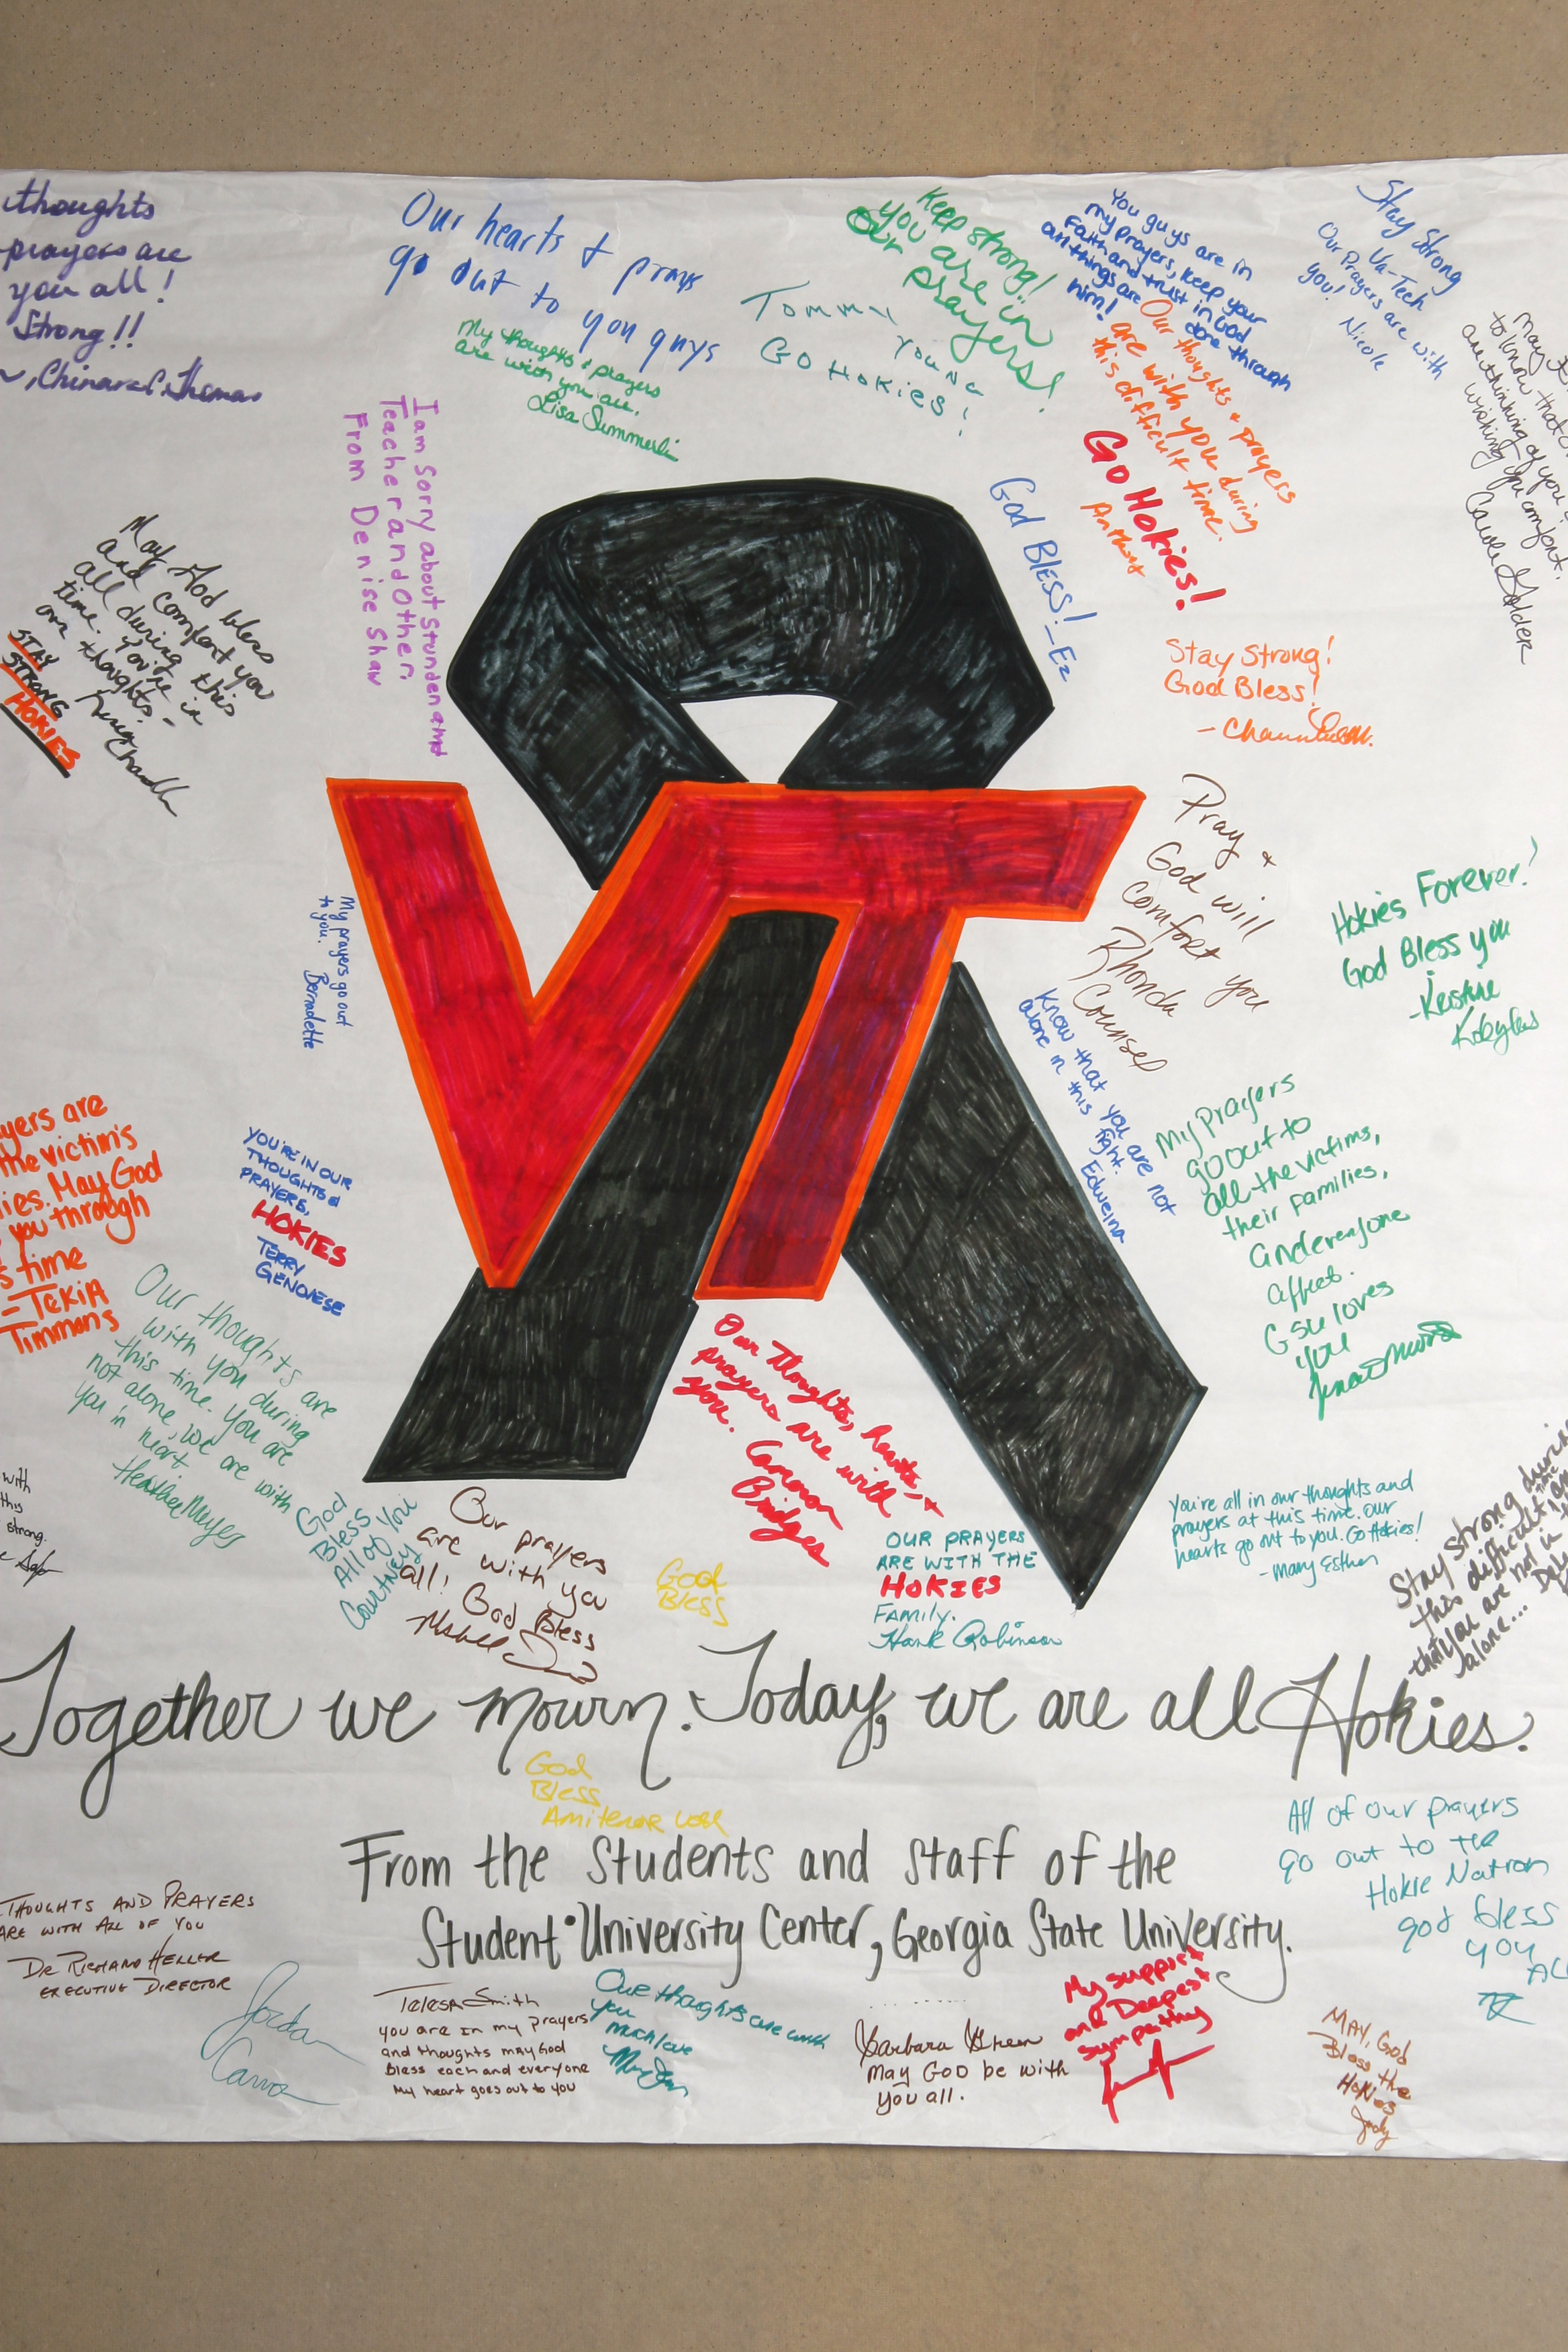 thoughts
prayers are
you all!
Strong!!
Our hearts & prays
go out to you guys
My thoughts & prayers
are with you all.
Lisa Summerlin
Tommy Young
GO HOKIES!
Keep strong!
you are in
our prayers!
You guys are in
my prayers, keep your
faith and trust in God
all things are done through
him!
Our thoughts & prayers
are with you during
this difficult time.
Go Hokies!
Stay Strong
Va-Tech
Our Prayers are with
you!
Nicole
to know that
are thinking of you
wishing you comfort.
Carole Golder
I am Sorry about Stunden and
Teacher and Other.
From Denise Shaw
God BLESS! -Ez
May God bless
and comfort you
all during this
time. You're in
our thoughts -
STAY
STRONG
HOKIES
Stay Strong!
God Bless!
Pray &
God will
comfort you
Rhonda
Counsel
Hokies Forever!
God Bless you
-Kristine
My prayers go out
to you.
Bernadette
Know that you are not
alone in this fight.
Edweina
My Prayers
go out to
all the victims,
their families,
and everyone
affect.
GSU loves
you
yers are
the victim's
ies. May God
you through
s time
-TEKIA
Timmons
YOU'RE IN OUR
THOUGHTS &
PRAYERS,
HOKIES
TERRY
GENOVESE
Our thoughts are
with you during
this time. You are
not alone, we are with
you in heart
Heather Meyer
with
this
strong.
God
Bless
All of You
Courtney
Our prayers
are with you
all!
God Bless
Our Thoughts, hearts, &
prayers are with
you. Cameron
Bridges
God
Bless
OUR PRAYERS
ARE WITH THE
HOKIES
FAMILY.
Hank Robinson
You're all in our thoughts and
prayers at this time. Our
hearts go out to you. Go Hokies!
- Mary Esther
Stay strong during
this difficult time
that you are not in
alone...
VT
Together we mourn. Today, we are all Hokies.
God
Bless
From the Students and Staff of the
Student University Center, Georgia State University.
All of our prayers
go out to the
Hokie Nation
god bless
you
THOUGHTS AND PRAYERS
ARE WITH ALL OF YOU
DR RICHARD HELLER
EXECUTIVE DIRECTOR
Jordan
Telesa Smith
you are in my prayers
and thoughts may God
bless each and everyone
My heart goes out to you
Our thoughts are with
you
much love
Barbara Green
May GOD be with
you all.
My support
and Deepest
Sympathy
MAY, God
Bless the
Hokies
Jody